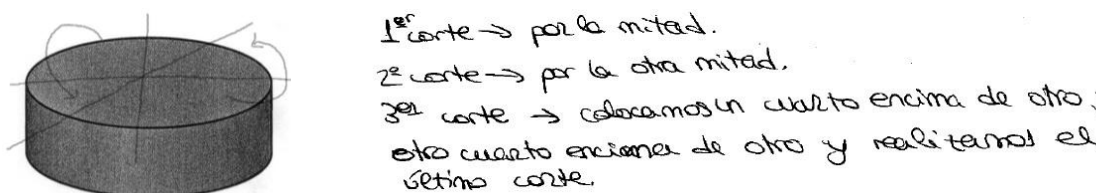 1er corte → por la mitad.
2º corte → por la otra mitad.
3er corte → colocamos un cuarto encima de otro,
otro cuarto encima de otro y realitamos el
último corte.